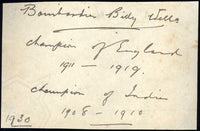 Bombardier Billy Wells
Champion of England
1911 — 1919.
Champion of India
1908 — 1910
1930